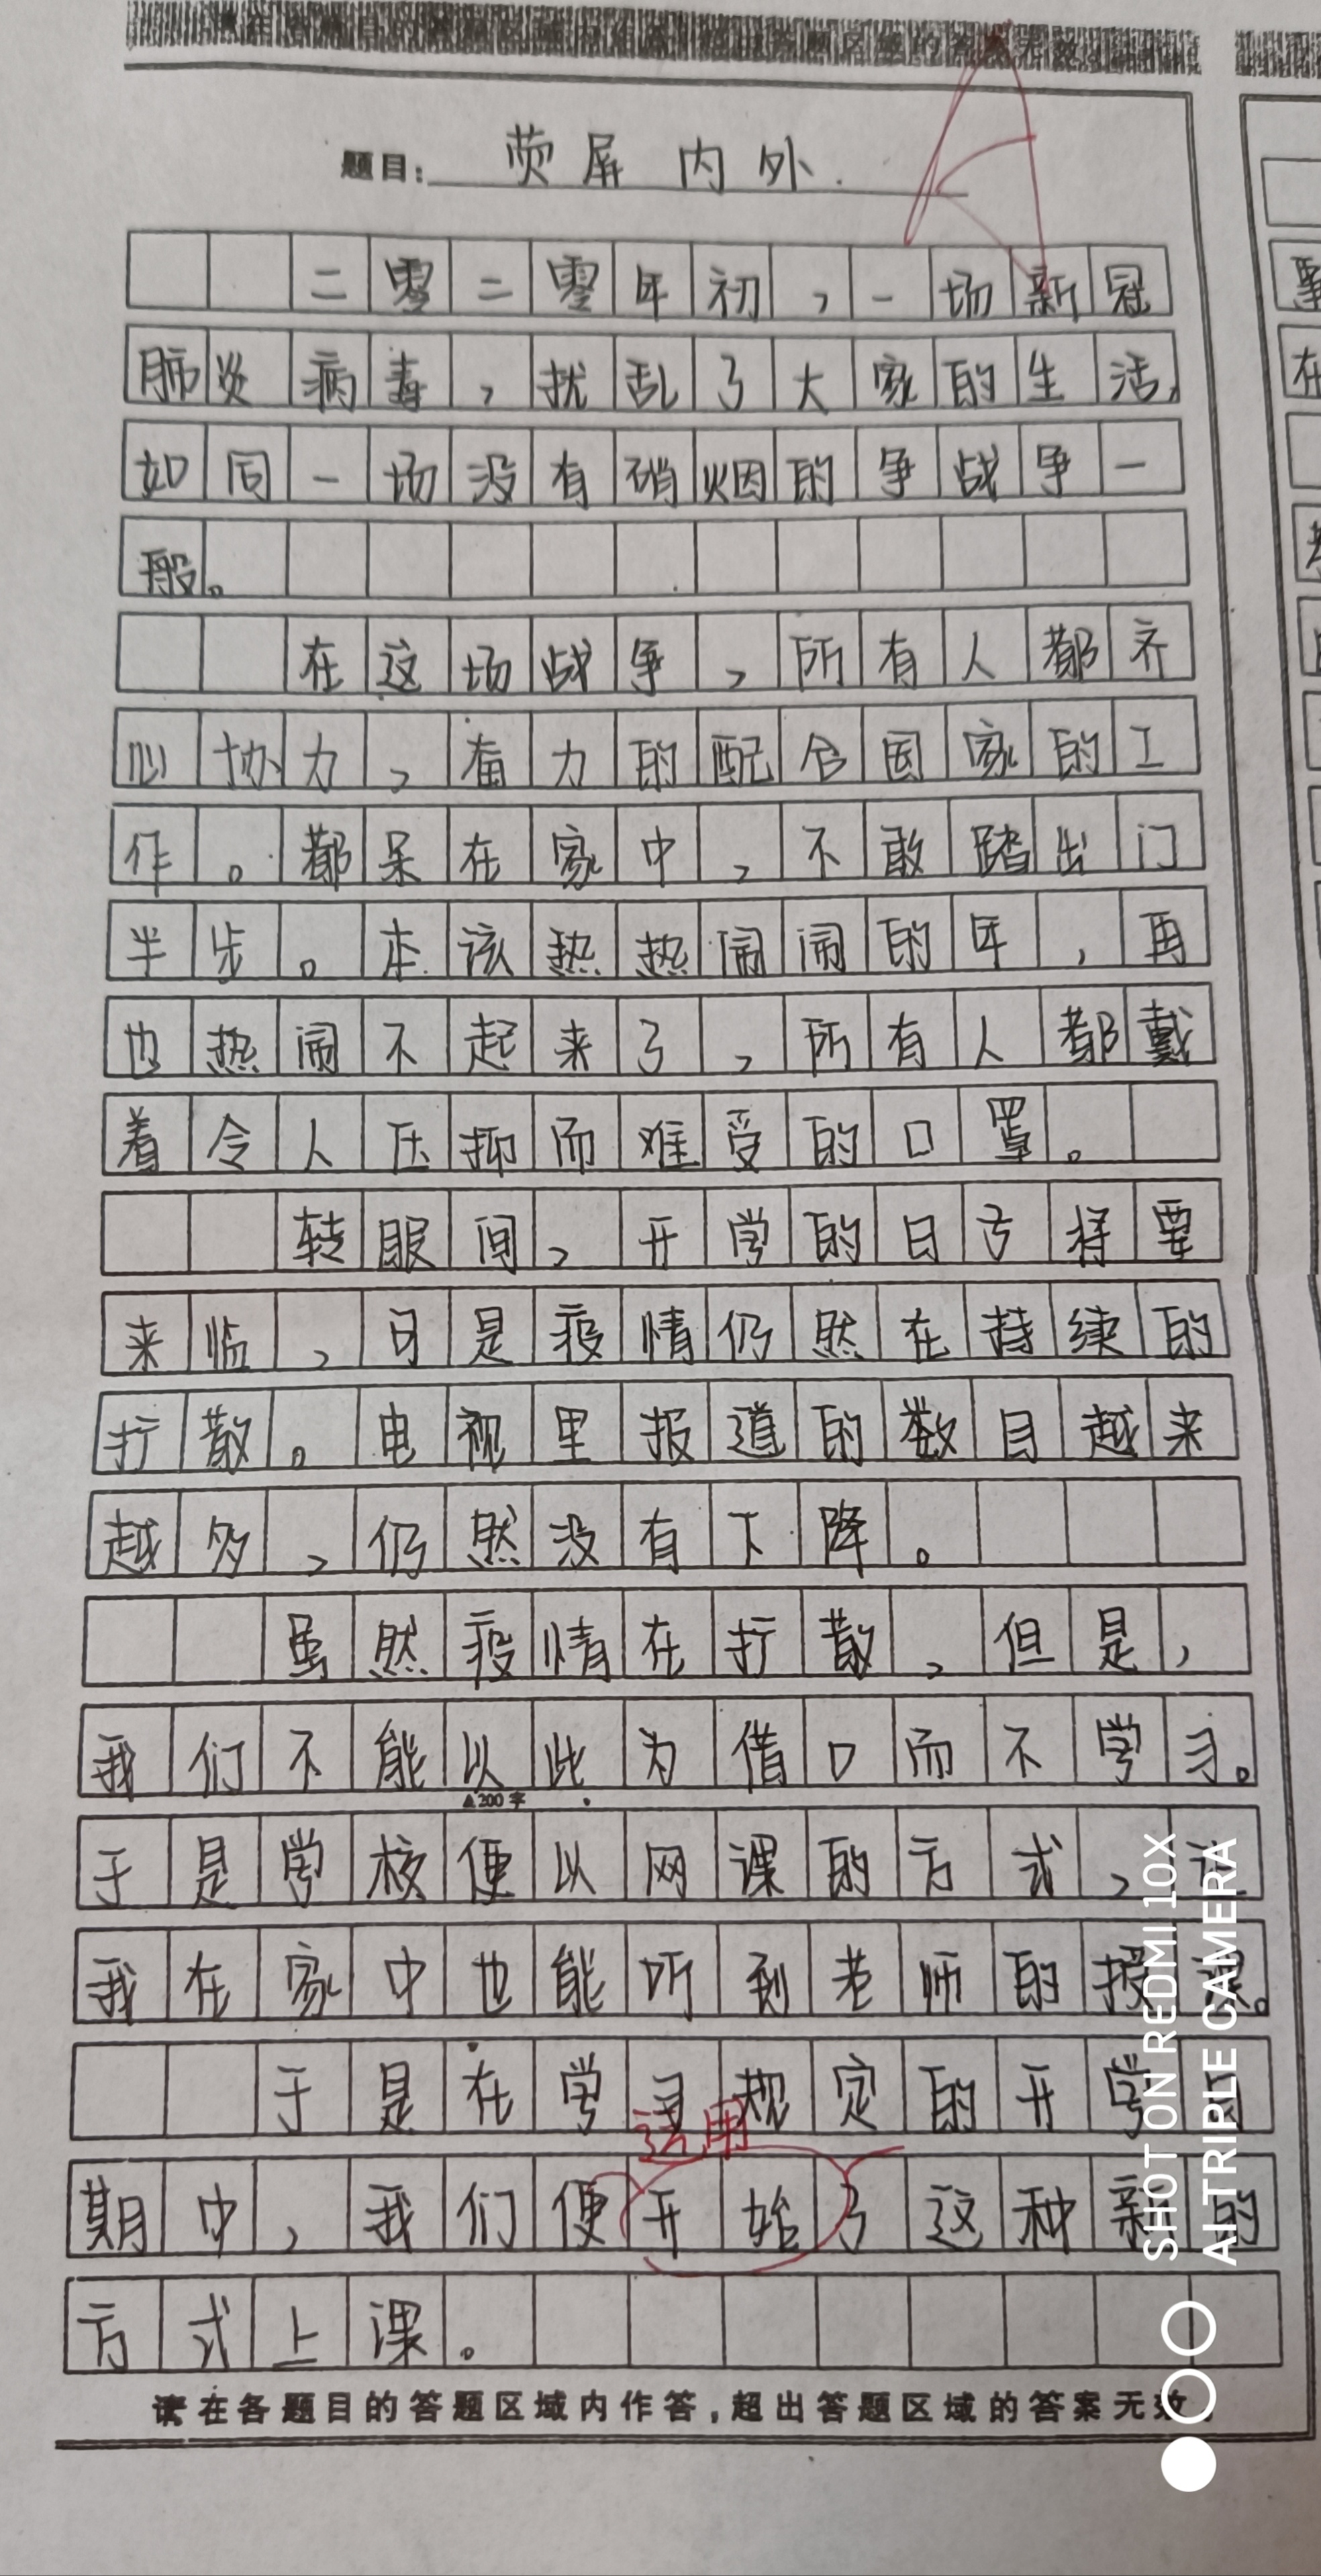 题目: 荧屏内外.
二零二零年初,一场新冠
肺炎病毒,扰乱了大家的生活,
如同一场没有硝烟的争战争一
般。
在这场战争,所有人都齐
心协力,奋力的配合国家的工
作。都呆在家中,不敢踏出门
半步。本该热热闹闹的年,再
也热闹不起来了,所有人都戴
着令人压抑而难受的口罩。
转眼间,开学的日子将要
来临,可是疫情仍然在持续的
扩散。电视里报道的数目越来
越多,仍然没有下降。
虽然疫情在扩散,但是,
我们不能以此为借口而不学习。
▲200字
于是学校便以网课的方式,让
我在家中也能听到老师的授课。
于是在学习规定的开学日
运用
期中,我们便开始了这种新的
方式上课。
请在各题目的答题区域内作答,超出答题区域的答案无效
SHOT ON REDMI 10X
AI TRIPLE CAMERA